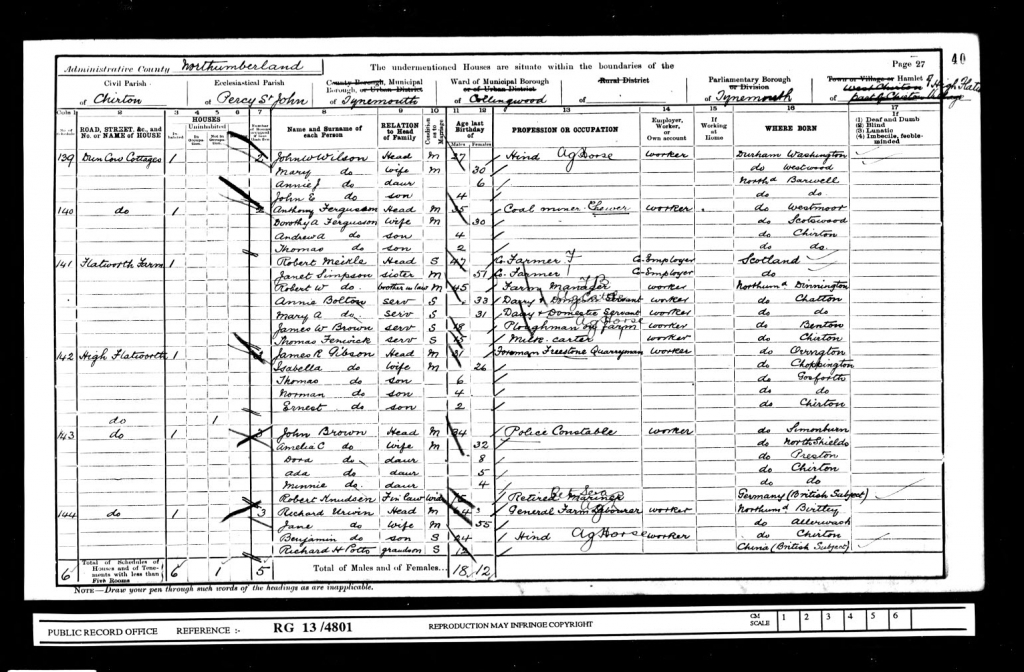 40
Administrative County Northumberland The undermentioned Houses are situate within the boundaries of the Page 27
Civil Parish Ecclesiastical Parish County Borough, Municipal Borough, or Urban District Ward of Municipal Borough or of Urban District Rural District Parliamentary Borough or Division Town or Village or Hamlet
of Chirton of Percy St John of Tynemouth of Collingwood of of Tynemouth of West Chirton & High Flatworth
part of Chirton Village
ROAD, STREET, &c., and No. or NAME of HOUSE HOUSES Uninhabited Name and Surname of each Person RELATION to Head of Family Age last Birthday of PROFESSION OR OCCUPATION Employer, Worker, or Own account If Working at Home WHERE BORN If (1) Deaf and Dumb (2) Blind (3) Lunatic (4) Imbecile, feeble-minded
1 2 3 4 5 6 7 8 9 10 11 12 13 14 15 16 17
Males Females
139 Dun Cow Cottages 1 2 John W Wilson Head M 27 Hind Ag Horse worker Durham Washington
Mary do Wife M 30 do Westwood
Annie J do daur 6 North'd Barwell
John E do son 4 do do
140 do 1 2 Anthony Ferguson Head M 35 Coal miner Hewer worker do Westmoor
Dorothy A Ferguson Wife M 30 do Scotswood
Andrew A do son 4 do Chirton
Thomas do son 2 do do
141 Flatworth Farm 1 Robert Meikle Head S 47 Co. Farmer F Co. Employer Scotland
Janet Simpson sister M 51 Co. Farmer Co. Employer do
Robert W do brother in law M 45 Farm Manager worker Northum'd Dinnington
Annie Bolton serv S 33 Dairy & Domestic Servant worker do Chatton
Mary A do serv S 31 Dairy & Domestic Servant worker do do
James W Brown serv S 18 Ploughman on farm Ag Horse worker do Benton
Thomas Fenwick serv S 15 Milk carter worker do Chirton
142 High Flatworth 1 James R Gibson Head M 31 Foreman Freestone Quarryman Worker do Ovington
Isabella do Wife M 26 do Choppington
Thomas do son 6 do Gosforth
Norman do son 4 do do
Ernest do son 2 do Chirton
do 1
143 do 1 3 John Brown Head M 34 Police Constable worker do Simonburn
Amelia C do Wife M 32 do North Shields
Dora do daur 8 do Preston
Ada do daur 5 do Chirton
Minnie do daur 4 do do
Robert Knudsen F in law Wid 75 Retired Mariner Germany (British Subject)
144 do 1 3 Richard Urwin Head M 64 General Farm Labourer worker Northum'd Birtley
Jane do Wife M 55 do Allerwash
Benjamin do son S 24 Hind Ag Horse worker do Chirton
Richard H Potts grandson S 12 China (British Subject)
6 Total of Schedules of Houses and of Tenements with less than Five Rooms 6 1 5 Total of Males and of Females... 18 12
NOTE—Draw your pen through such words of the headings as are inapplicable.
PUBLIC RECORD OFFICE REFERENCE :- RG 13 /4801 REPRODUCTION MAY INFRINGE COPYRIGHT CM SCALE 1 2 3 4 5 6